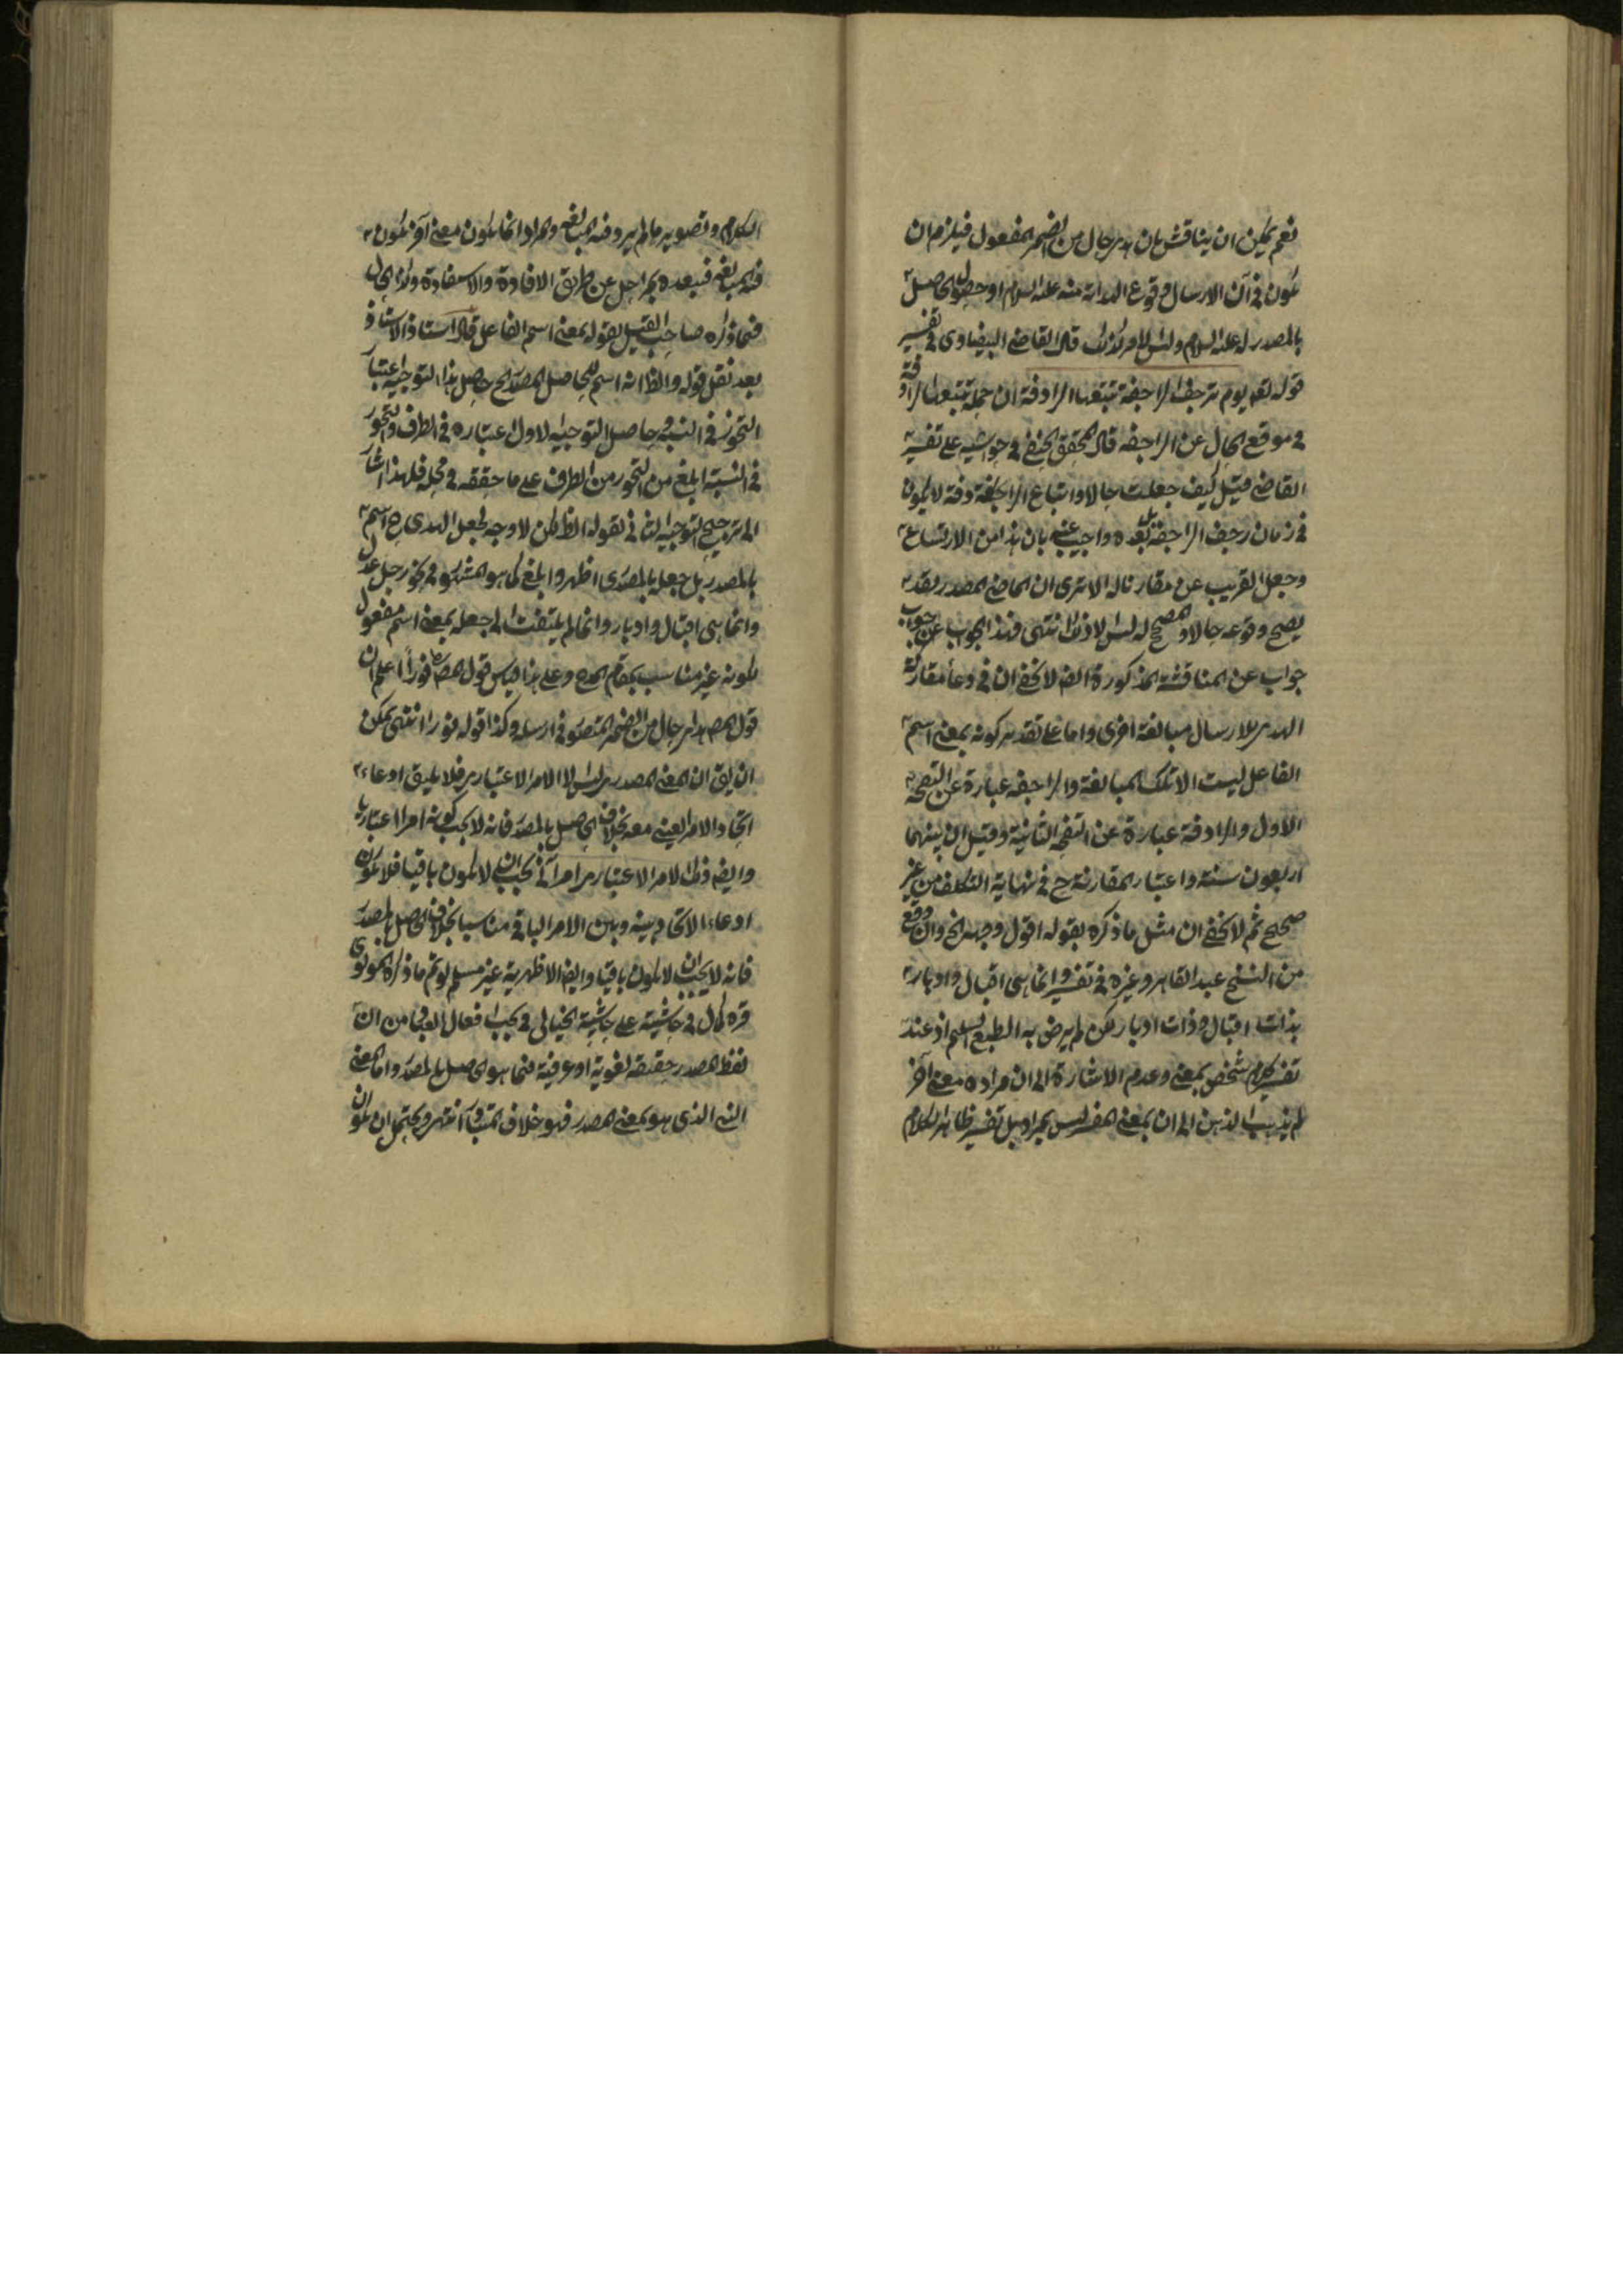 نعم يمكن ان يناقش بان هدى حال من الضمير المفعول فيلزم ان
يكون في آن الارسال وقوع الهداية منه عليه السلام او حصول الحاصل
بالمصدر له عليه السلام وليس الامر كذلك قال القاضي البيضاوى في تفسير
قوله تعم يوم ترجف الراجفة تتبعها الرادفة ان جملة تتبعها الرادفة
في موقع الحال عن الراجفه قال المحقق الخفى في حواشيه على تفسير
القاضي فيتل كيف جعلت حالا واتباع الرادفة لا يكون
في زمان رجف الراجفة بل بعده واجيب عنه بان هذا من الاتساع
وجعل القريب عن مقارناله الا ترى ان الماضي المصدر بقد
يصح وقوعه حالا والمصحح له ليس الا ذلك انتهى فهذا الجواب عن
جواب عن المناقشة المذكورة ايضا لا يخفى ان في دعاء مقارنة
الهدى للارسال مبالغة اخرى واما على تقدير كونه بمعنى اسم
الفاعل ليست الا تلك المبالغة والراجفه عبارة عن النفخة
الاول والرادفة عبارة عن النفخة الثانية وقيل ان بينهما
اربعون سنة واعتبار المقارنة ح في نهاية التكلف من غير
صحيح ثم لا يخفى ان مثل ما ذكره بقوله اقول وجه الخ وان وقع
من الشيخ عبد القاهر وغيره في تفسير وانما هى اقبال وادبار
بذات اقبال وذات ادبار لكن لم يرض به الطبع السليم اذ عند
تفسير كلام شخص بمعنى وعدم الاشارة الى ان مراده معنى آخر
لم يذهب الذهن الى ان بمعنى المفسر ليس بمراد بل تفسير ظاهر الكلام
الكلام وتصوير ما لم يرد فيه المبالغة والمراد انما يكون معنى آخر يكون
فيه المبالغة فبعده بمراحل عن طريق الافادة والاستفادة وكذا الحال
فيما ذكره صاحب القيل بقوله بمعنى اسم الفاعل قال استاذ الاستاذ
بعد نقل قوله والظ انه اسم للحاصل بالمصدر ح حاصل هذا التوجيه اعتبار
التجوز في النسبة وحاصل التوجيه الاول اعتباره في الطرف والتجوز
في النسبة ابلغ من التجوز من الطرف على ما حققه في محله فلهذا اشار
الى ترجيح التوجيه الثاني بقوله الظ لكن لا وجه لجعل الهدى ح اسم
بالمصدر بل جعله بالمصدرى اظهر وابلغ كما هو المشهور في نحو رجل عدل
وانما هى اقبال وادبار وانما لم يلتفت الى جعله بمعنى اسم مفعول
لكونه غير مناسب بمقام المدح وعلى هذا فقس قول المص نورا اعلم ان
قول المص هدى حال من الضمير المنصوب في ارسله وكذا قوله نورا انتهى يمكن
ان يق ان المعنى المصدرى ليس الا الامر الاعتبارى فلا يليق ادعاء
اتحاد الامر العينى معه بخلاف الحاصل بالمصدر فانه لا يجب كونه امرا اعتباريا
وايضه ذلك الامر الاعتبارى امر آنى يجب ان لا يكون باقيا فلا يكون
ادعاء الاتحاد بينه وبين الامر الباقي مناسبا بخلاف الحاصل بالمصدر
فانه لا يجب ان لا يكون باقيا وايضه الاظهرية غير مسلم لو تم ما ذكره المولوى
قره كمال في حاشيته على حاشية الخيالى في بحث افعال العباد من ان
لفظ المصدر حقيقة لغوية او عرفية فيما هو الحاصل بالمصدر واما المعنى
النسبى الذى هو بمعنى المصدر فهو خلاف المتبادر انتهى ويحتمل ان يكون